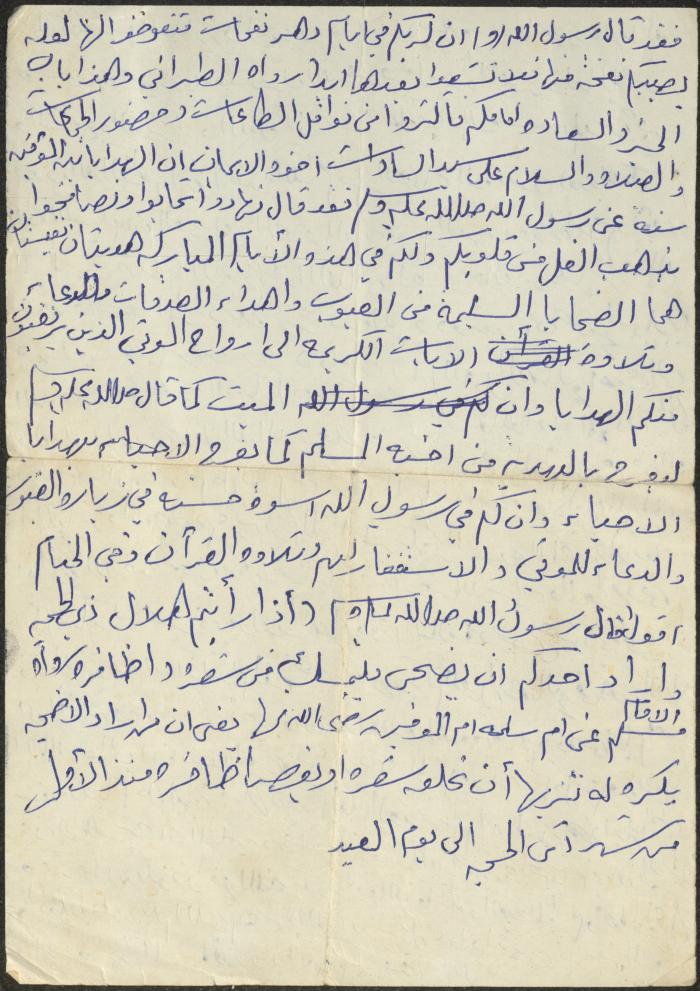 فقد قال رسول الله (ص) ان لربكم في ايام دهركم نفحات فتعرضوا لها لعله
يصيبكم نفحة منها فلا تشقوا بعدها ابدا رواه الطبراني وهذا باب
الخير والسعاده امامكم فأكثروا من نوافل الطاعات وحضور الجماعات
والصلاة والسلام على سيد السادات اخوة الايمان ان الهدايا بين المؤمنين
سنة عن رسول الله صلى الله عليه وسلم فقد قال تهادوا تحابوا وتصافحوا
يذهب الغل من قلوبكم ولكم في هذه الأيام المباركه هديتان نفيستان
هما الضحايا السليمة من العيوب واهداء الصدقات والدعاء
وتلاوة القرآن الايات الكريمه الى ارواح الموتى الذين يرتقبون
منكم الهدايا وان لكم في رسول الله الميت كما قال صلى الله عليه وسلم
ليفرح بالهدية من اخيه المسلم كما يفرح الاحياء بهدايا
الاحياء وان لكم في رسول الله اسوة حسنه في زيارة القبور
والدعاء للموتى والاستغفار لهم وتلاوة القرآن وفي الختام
اقول قال رسول الله صلى الله عليه وسلم (اذا رأيتم هلال ذي الحجه
واراد احدكم ان يضحي فليمسك عن شعره واظافره رواه
الامام
مسلم عن ام سلمه ام المؤمنين رضي الله عنها يعني ان من اراد الاضحيه
يكره له تنزيها أن يحلق شعره او يقص اظافره منذ الأول
من شهر ذي الحجه الى يوم العيد